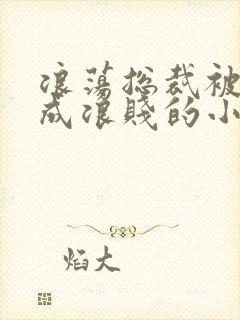 浪蕩总裁被
成浪賤的小
焰大